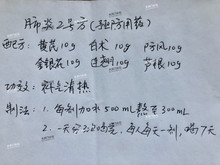 肺炎2号方（预防用药）
配方：黄芪10g 白术10g 防风10g
金银花10g 连翘10g 芦根10g
功效：解毒清热
制法：1. 每剂加水500mL熬至300mL
2. 一天分3次温服，每人每天一剂，喝7天